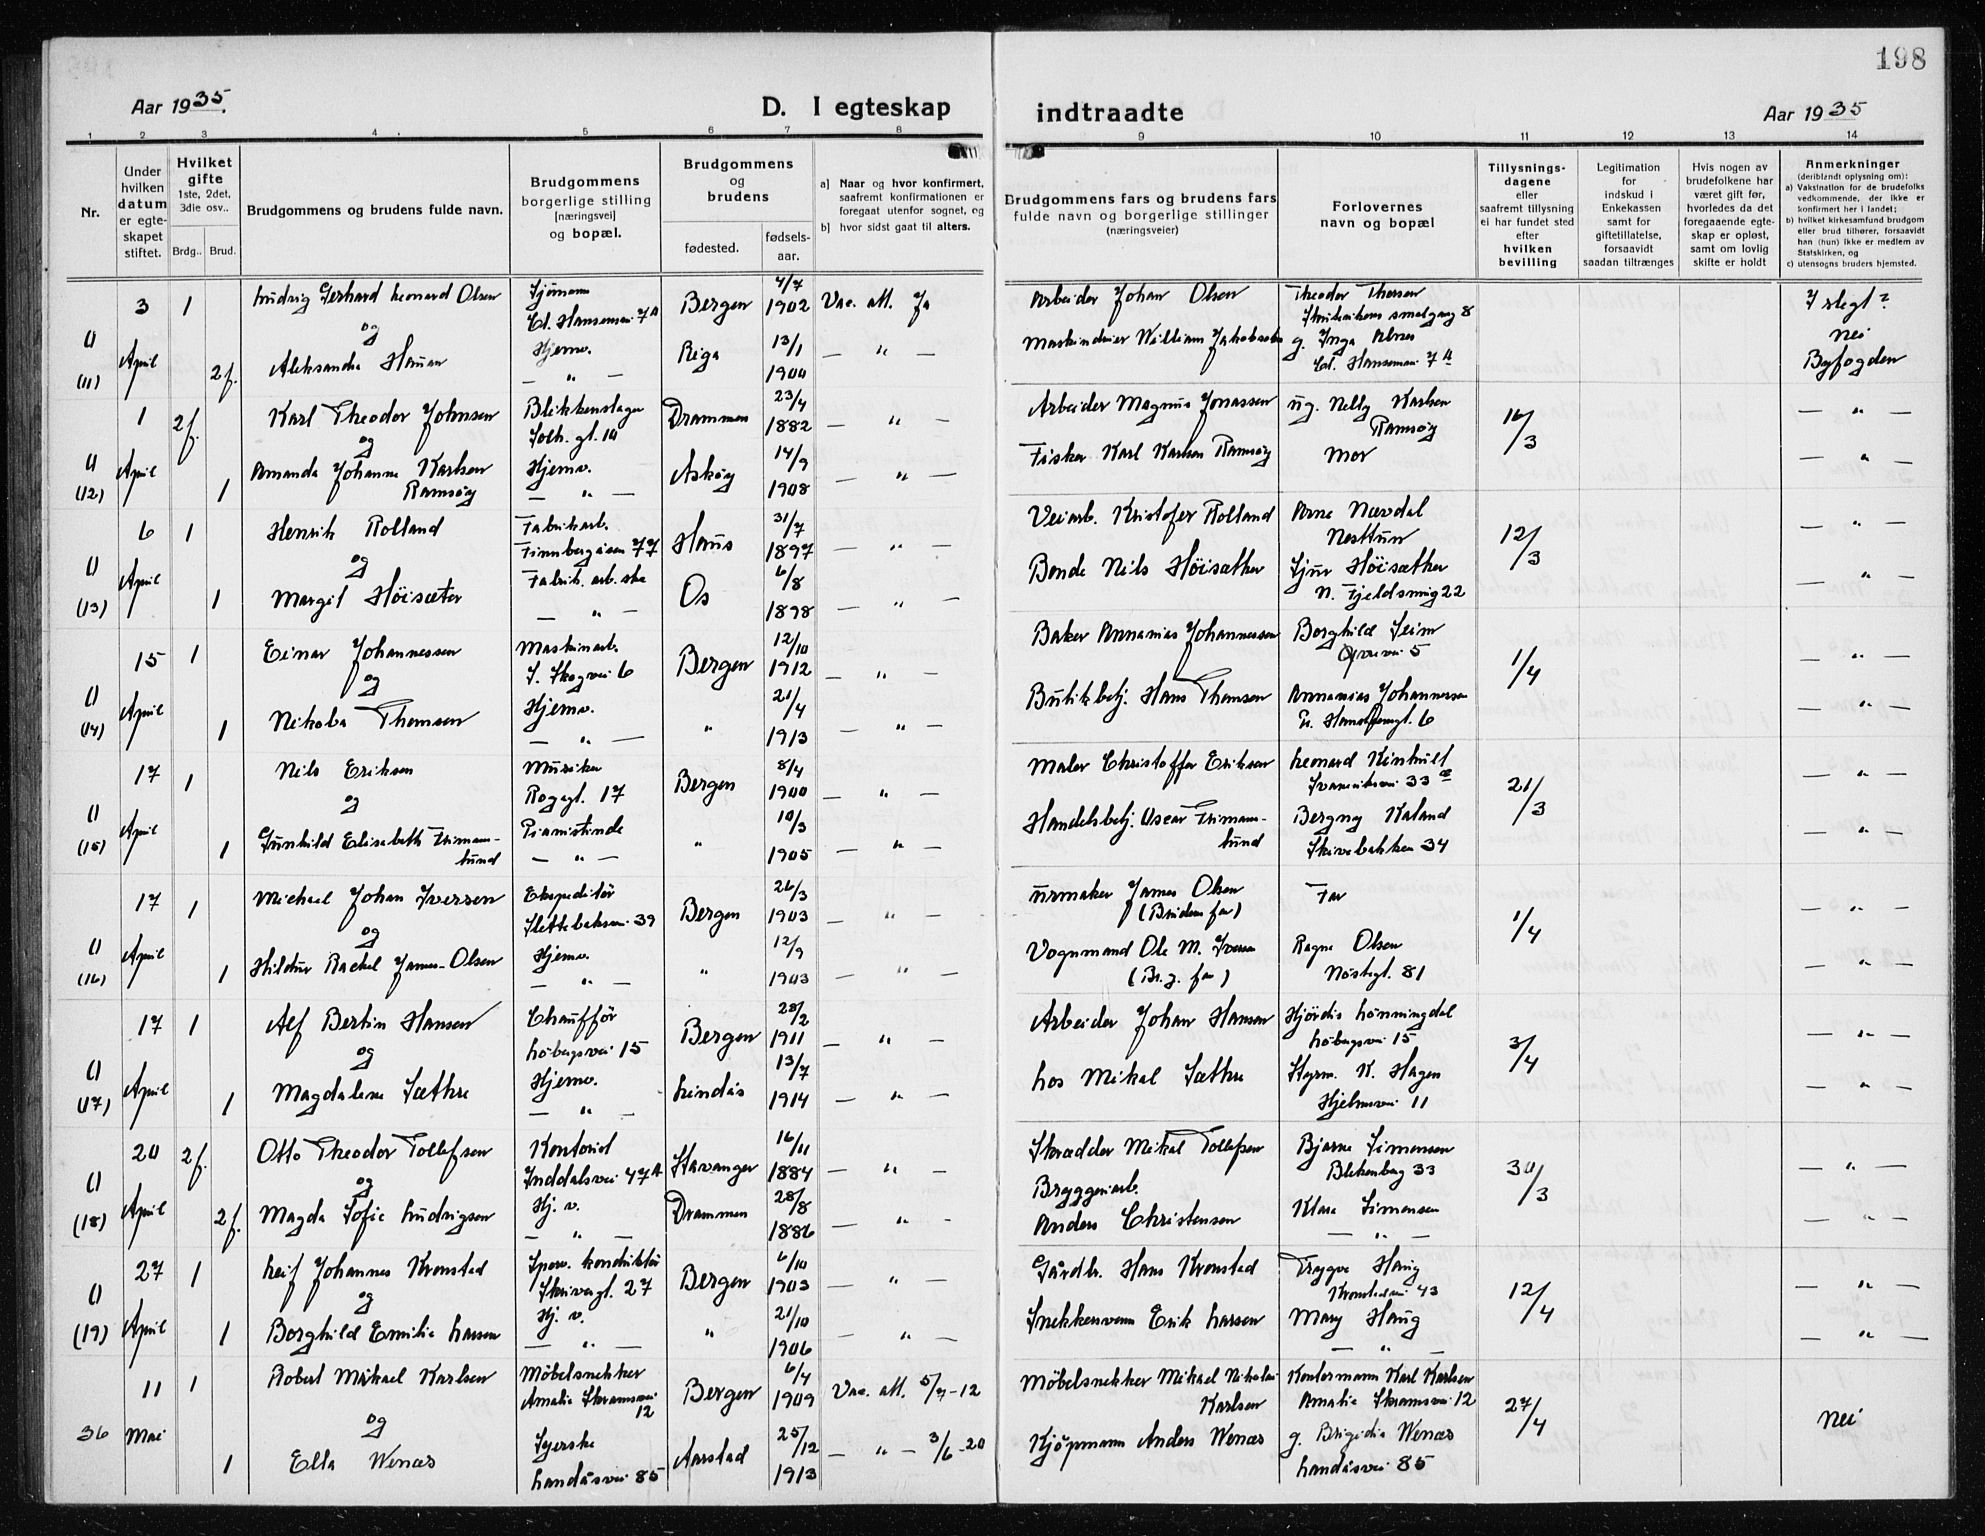 198
Aar 1935.
D. I egteskap
indtraadte
Aar 1935
1 2 3 4 5 6 7 8 9 10 11 12 13 14
Nr.
Under hvilken datum er egteskapet stiftet.
Hvilket gifte
1ste, 2det, 3die osv..
Brdg.. Brud.
Brudgommens og brudens fulde navn.
Brudgommens borgerlige stilling [næringsvei] og bopæl.
Brudgommens og brudens
fødested.
fødselsaar.
a) Naar og hvor konfirmert, saafremt konfirmationen er foregaat utenfor sognet, og
b) hvor sidst gaat til alters.
Brudgommens fars og brudens fars fulde navn og borgerlige stillinger (næringsveier)
Forlovernes navn og bopæl
Tillysningsdagene eller saafremt tillysning ei har fundet sted efter hvilken bevilling
Legitimation for indskud i Enkekassen samt for giftetillatelse, forsaavidt saadan tiltrænges
Hvis nogen av brudefolkene har været gift før, hvorledes da det foregaaende egteskap er opløst, samt om lovlig skifte er holdt
Anmerkninger (deriblandt oplysning om):
a) Vaksination for de brudefolks vedkommende, der ikke er konfirmert her i landet;
b) hvilket kirkesamfund brudgom eller brud tilhører, forsaavidt han (hun) ikke er medlem av Statskirken, og
c) utensogns bruders hjemsted.
3 1 Ludvig Gerhard Leonard Olsen Sjømann Bergen 4/7 1902 Vac. att. Ja Arbeider Johan Olsen Theodor Thorsen 8 I slegt?
() (11) April 2f. og Aleksandra Hauan Hjemv. — " — Riga 13/1 1900 — " — Maskindriver William Jakobsen g. Inga Cd. Hansensvei 7 A nei Byfogden
1 2f. Karl Theodor Johnsen Blikkenslager Drammen 23/4 1882 — " — Arbeider Magnus Jonassen ug. Nelly Karlsen Ramsøy 16/3 — " —
() (12) April 1 og Amanda Johanna Karlsen Ramsøy Hjemv. — " — Askøy 14/9 1908 — " — Fisker Karl Karlsen Ramsøy Mor — " —
6 1 Henrik Rolland Fabrikarb. Finnbergåsen 77 Haus 31/7 1897 — " — Veiarb. Kristofer Rolland Arne Nævdal Nesttun 12/3 — " —
() (13) April 1 og Margit Høisæter Fabrik. arb. ske " — Os 6/8 1898 — " — Bonde Nils Høisæther Sjur Høisæther N. Fjeldsmug 22 — " —
15 1 Einar Johannessen Maskinarb. S. Skogvei 6 Bergen 12/10 1912 — " — Baker Annanias Johannessen Borghild Seim 5 1/4 — " —
() (14) April 1 og Nikoba Thomsen Hjemv. — " — " 21/4 1913 — " — Butikbetj. Hans Thomsen Annanias Johannessen 6 — " —
17 1 Nils Eriksen Musiker 17 Bergen 8/4 1900 — " — Maler Christoffer Eriksen Leonard Kinhult 33 21/3 — " —
() (15) April 1 og Gunhild Elisabeth Frimannlund Pianistinde — " — " 10/3 1905 — " — Handelsbetj. Oscar Frimannlund Bergny Kaland Skivebakken 34 — " —
17 1 Michael Johan Iversen Ekspeditør Slettebaksvei 39 Bergen 26/3 1903 — " — Urmaker James Olsen (Brudens far) Far 1/4 — " —
() (16) April 1 og Hildur Rachel James-Olsen Hjemv. — " — " 12/9 1903 — " — Vognmand Ole M. Iversen (Br.g. far) Ragna Olsen Nøstegt. 81 — " —
17 1 Alf Bertin Hansen Chauffør Løbergsvei 15 Bergen 28/2 1911 — " — Arbeider Johan Hansen Hjørdis Lønningdal Løbergsvei 15 3/4 — " —
() (17) April 1 og Magdalena Sæthre Hjemv. — " — Lindås 13/7 1914 — " — Los Mikal Sæthre Styrm. K. Hagen Hjelmsvei 11 — " —
20 2f. Otto Theodor Tollefsen Kontorist Inndalsvei 47 A Stavanger 16/11 1884 — " — Skrædder Mikal Tollefsen Bjarne Simonsen Blekenberg 33 30/3 — " —
() (18) April 2f. og Magda Sofie Ludvigsen Hj. v. — " — Drammen 28/8 1886 — " — Bryggeriarb. Anders Christensen Klara Simonsen — " — — " —
27 1 Leif Johannes Kronstad Sporv. konduktør Skivergt. 27 Bergen 6/10 1903 — " — Gårdbr. Hans Kronstad Trygve Haug Kronstadvei 43 12/4 — " —
() (19) April 1 og Borghild Emilie Larsen Hj. v. — " — " 21/10 1906 — " — Snekkersvenn Erik Larsen Mary Haug — " — — " —
11 1 Robert Mikael Karlsen Møbelsnekker Amalie Skramsvei 12 Bergen 6/4 1909 Vac. att. 5/7-12 Møbelsnekker Mikael Nikolai Karlsen Kontormann Karl Karlsen Amalie Skramsvei 12 27/4 Nei
36 Mai 1 og Ella Wenæs Syerske Landåsvei 85 Aarstad 25/12 1913 — " — 3/6-20 Kjøpmann Anders Wenæs g. Brigidia Wenæs Landåsvei 85